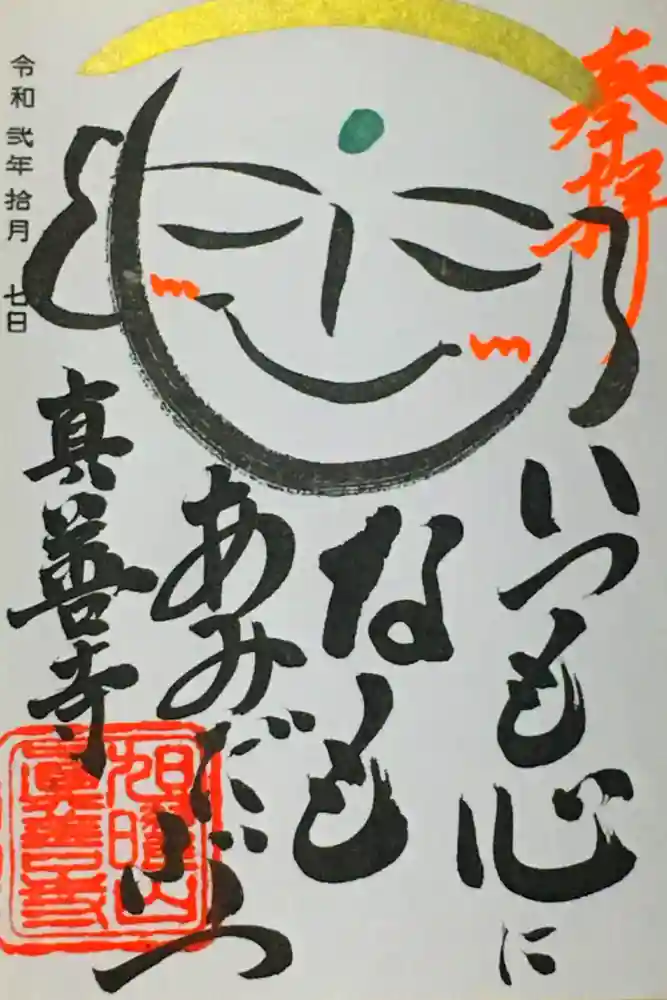 奉拝
いつも心に
なも
あみだぶつ
真善寺
令和弐年拾月七日
旭曜山
眞善寺